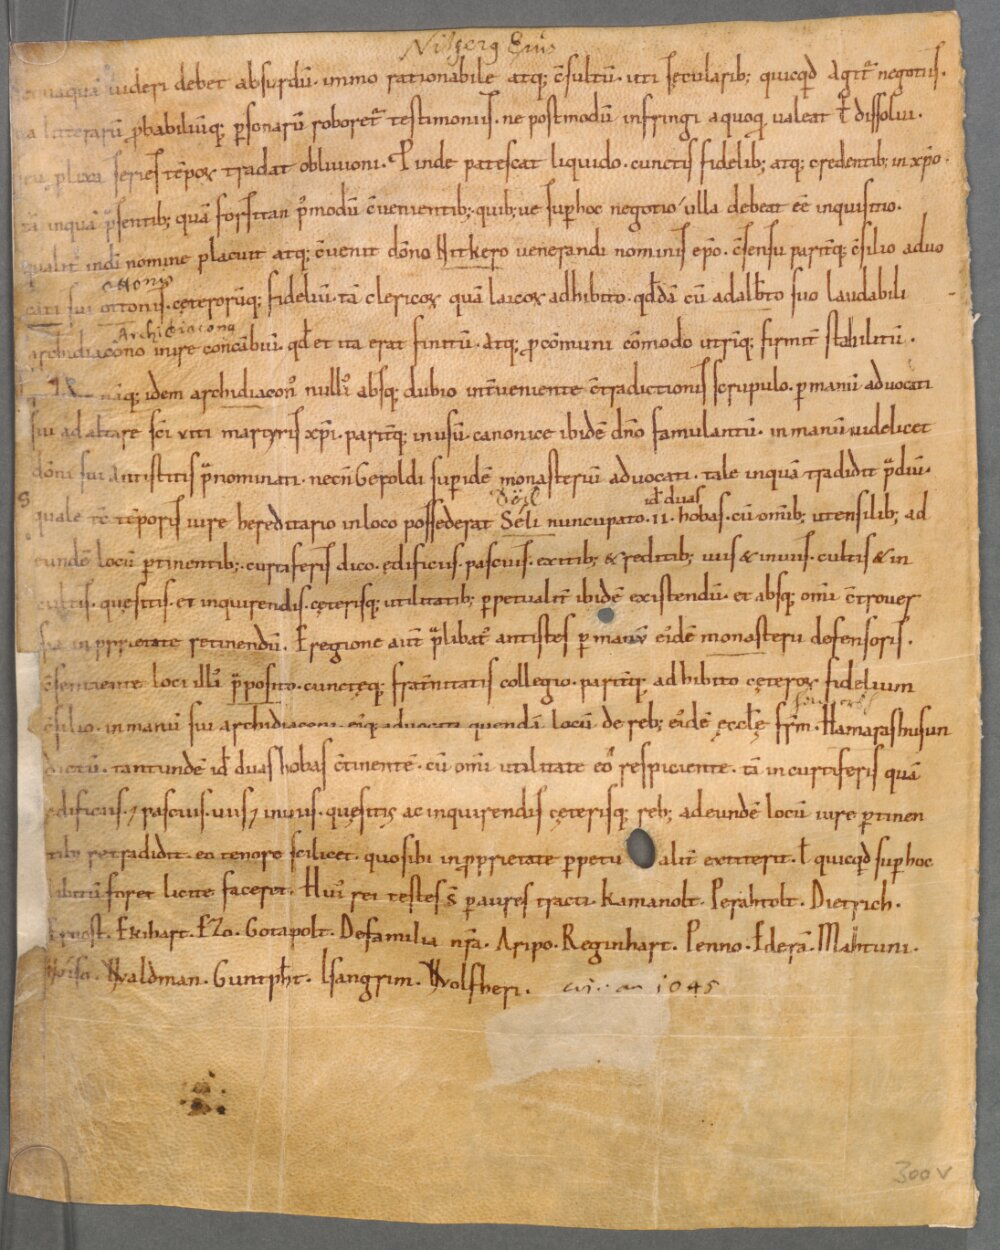 Nitgerg Eius
videri debet absurdū. immo rationabile atq; c̄sultū. uti sęcularib; quicqd̄ agit᷑ negotiis.
litterarū p̱babiliūq; p̱sonarū roboret᷑ testimoniis. ne postmodū infringi a quoq̱ valeat ł dissolui.
p̱lixa series tēpoꝝ tradat obliuioni. P̱inde patescat liquido. cunctis fidelib; atq; credentib; in xp̄o.
tā inquā p̄sentib; quā forsitan p̱modū c̄uenientib; quib; ue sup̱ hoc negotio ulla debeat eē inquisitio.
qualit̄ indī nomine placuit atq; c̄uenit dōno Nitkero venerandi nominis ep̄o. c̄sensu parit̄q; c̄silio aduo
ottonis
cati sui ottonis. cęterorūq; fideliū. tā clericoꝝ quā laicoꝝ adhibito. qd̄dā cū adalb̄to suo laudabili
Archidiacono
archidiacōno inire concābiū. qd̄ et ita erat finitū. atq; p̱ cōmuni cōmodo utriq; firmit̄ stabilitū.
idem archidiacon᷒ nulli᷒ absq; dubio int̄ueniente c̄tradictionis scrupulo. p̱ manū advocati
sui ad altare sc̄i viti martyris xp̄i. parit̄q; in usū. canonice ibidē dn̄o famulantū. in manū uidelicet
dōni sui antistitis p̄nominati. necn̄ Gepoldi sup̱ idē monasteriū advocati. tale inquā tradidit p̄diū.
Sösl id̄ duas
quale tc̄ tēporis iure hereditario in loco possederat Seli nuncupato. II. hobas. cū om̄ib; utensilib; ad
eundē locū p̱tinentib;. curtiferis dico. ędificiis. pascuis. exitib; & reditib; uiis & inuiis. cultis & in
cultis. quęsitis. et inquirendis. cęterisq; utilitatib; p̱petualit̄ ibidē existendū. et absq; om̄i c̄trouer
sia in p̱prietate retinendū. E regione aut̄ p̄libat᷒ antistes p̱ manū eidē monasterii defensoris.
c̄sentiente loci illi᷒ p̄posito. cunctęq; frat̄nitatis collegio. parit̄q; adhibito cęteroꝝ fidelium
c̄silio. in manū sui archidiaconi ei᷒q; advocati quendā locū de reb; eidē ęcclę frm̄. Hamarashusun
dictū. tantundē id̄ duas hobas c̄tinentē. cū om̄i utilitate eo᷒ respiciente. tā in curtiferis quā
ędificiis. ⁊ pascuis. uiis ⁊ inuiis. quęsitis ac inquirendis cęterisq; reb; ad eundē locū iure p̱tinen
tib; retradidit. eo tenore scilicet. quo sibi in p̱prietate p̱petu alit̄ extiterit. ł quicqd̄ sup̱ hoc
libitū foret licite faceret. Hui᷒ rei testes s̄ p̱ aures tracti. Kamanolt. Perahtolt. Dietrich.
Ernost. Ekihart. Ezo. Gotapolt. De familia nr̄a. Aripo. Reginhart. Penno. Ederā. Mahtuni.
Waldman. Guntp̄ht. Isangrim. Wolfheri. 1045
300 v